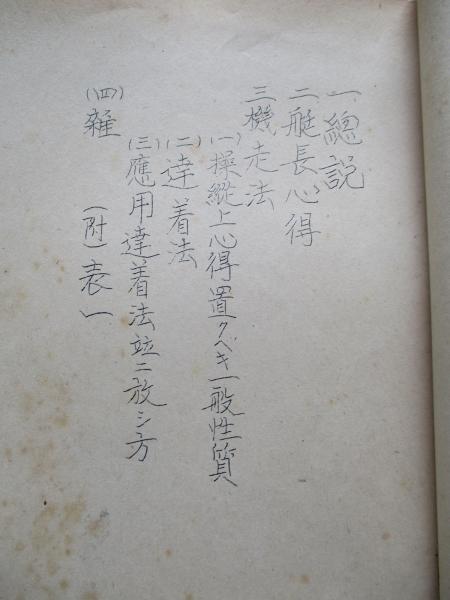 一總説
二艇長心得
三機走法
(一)操縱上心得置クベキ一般性質
(二)達着法
(三)應用達着法竝ニ放シ方
(四)雜
(附)表一